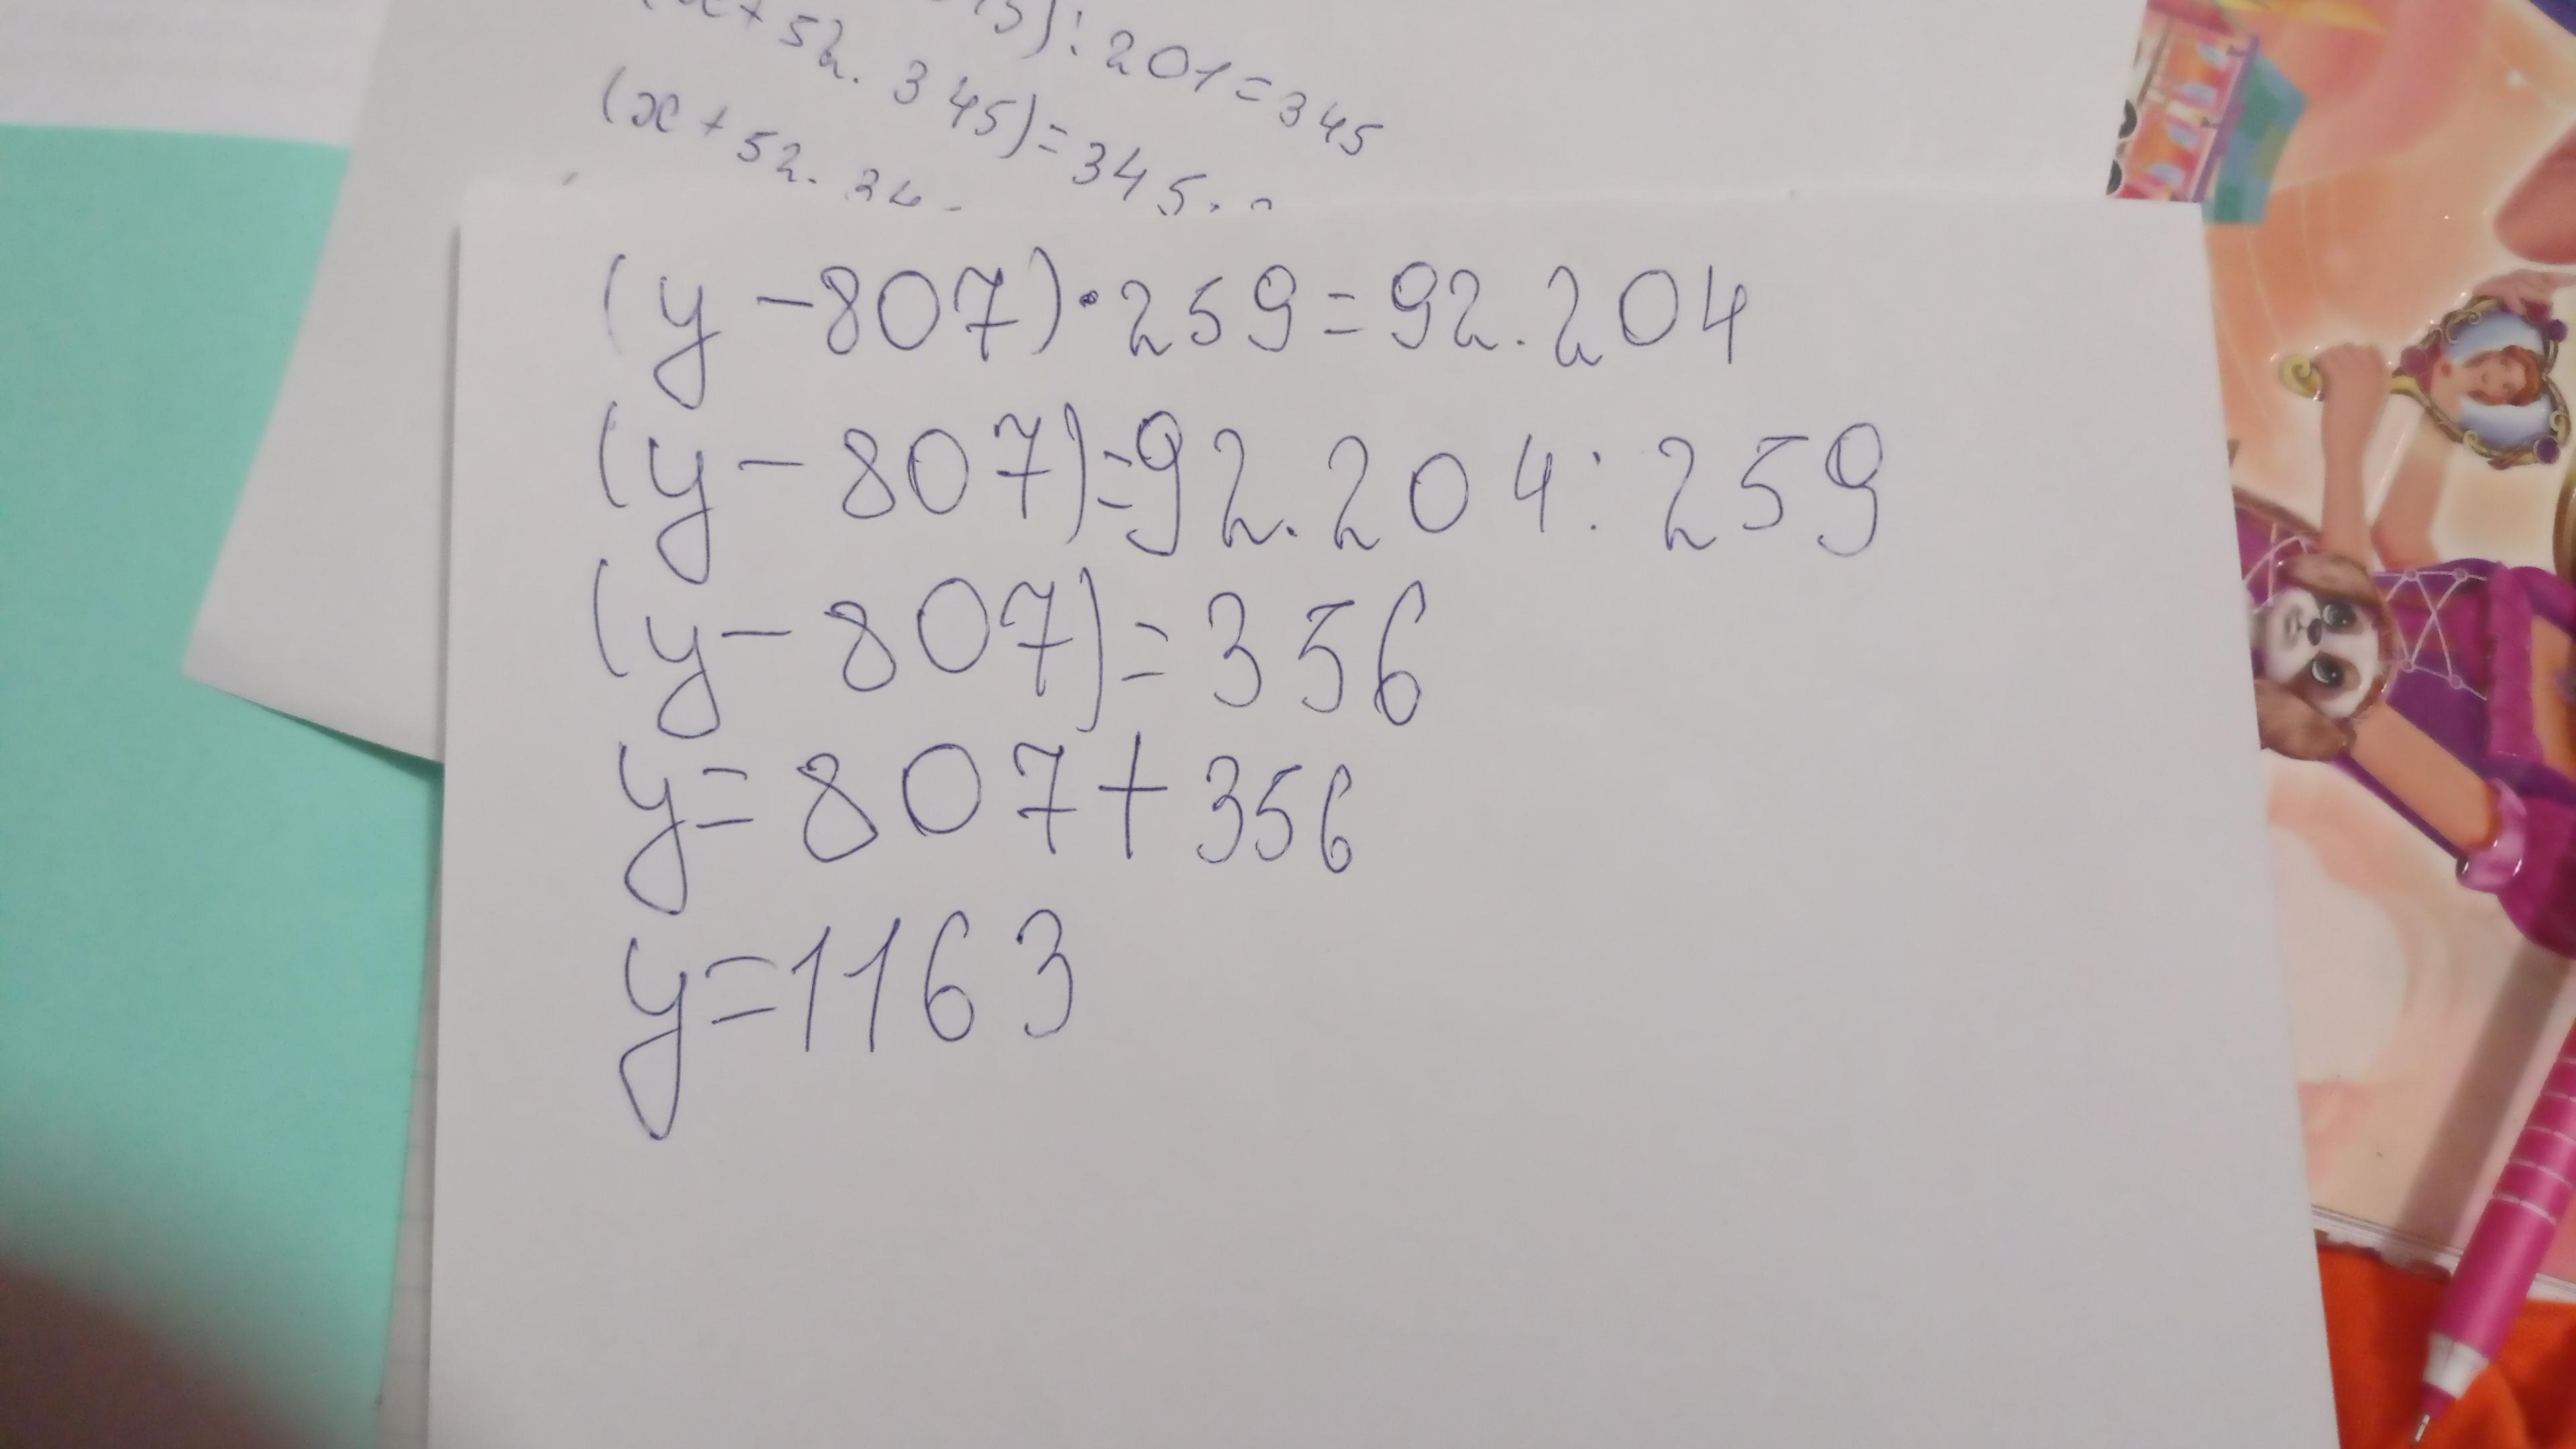 ): 201=345
(x+52.345)=345.
(x+52.
(y-807)·259=92.204
(y-807)=92.204:259
(y-807)=356
y=807+356
y=1163